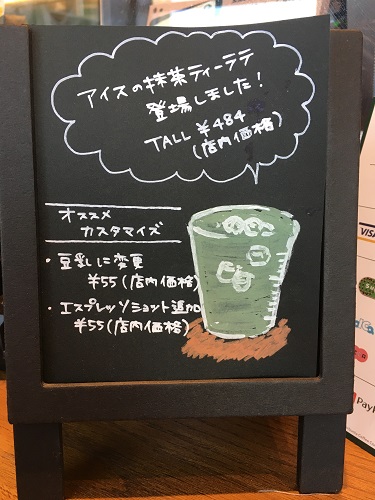 アイスの抹茶ティーラテ
登場しました！
TALL ¥484
(店内価格)
オススメ
カスタマイズ
・豆乳に変更
¥55(店内価格)
・エスプレッソショット追加
¥55(店内価格)
VISA
PayP